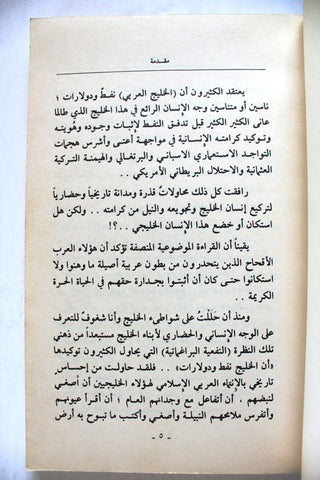 مقدمة
يعتقد الكثيرون أن (الخليج العربي) نفط ودولارات ؛
ناسين أو متناسين وجه الإنسان الرائع في هذا الخليج الذي طالما
عانى الكثير الكثير قبل تدفق النفط لإثبات وجوده وهُويته
وتوكيد كرامته الإنسانية في مواجهة أعتى وأشرس هجمات
التواجد الاستعماري الاسباني والبرتغالي والهيمنة التركية
العثمانية والاحتلال البريطاني الأمريكي ..
رافقت كل ذلك محاولات قذرة ومدانة تاريخياً وحضارياً
لتركيع إنسان الخليج وتجويعه والنيل من كرامته .. ولكن هل
استكان أو خضع هذا الإنسان الخليجي .. ؟!
يقيناً أن القراءة الموضوعية المنصفة تؤكد أن هؤلاء العرب
الأقحاح الذين يتحدرون من بطون عربية أصيلة ما وهنوا ولا
استكانوا حتى كان أن أثبتوا بجدارة حقهم في الحياة الحرة
الكريمة ..
ومنذ أن حَلَلْتُ على شواطىء الخليج وأنا شغوفٌ للتعرف
على الوجه الإنساني والحضاري لأبناء الخليج مستبعداً من ذهني
تلك النظرة (النفعية البراغماتية) التي يحاول الكثيرون توكيدها
«أن الخليج نفط ودولارات» .. فلقد حاولت من إحساس
تاريخي بالإنتهاء العربي الإسلامي لهؤلاء الخليجيين أن أصغي
لنبضهم . أن أتفاعل مع وجدانهم العام ؛ أن أقرأ عيونهم
وأتفرس ملامحهم النبيلة وأصغي وأكتب ما تبوح به أرض
- ٥ -